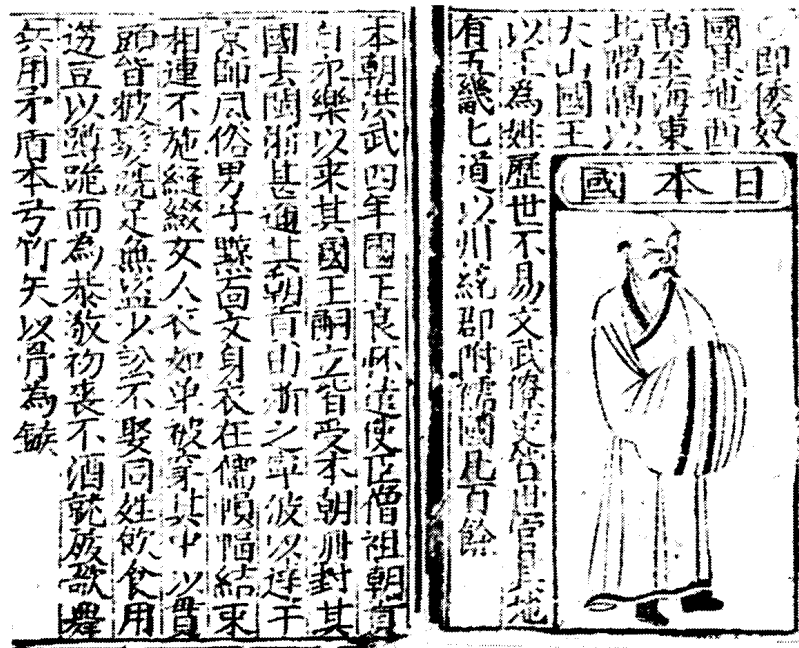 日本國
即倭奴
國其地西
南至海東
北隅隔以
大山國王
以王為姓歷世不易文武僚吏皆世官其地
有五畿七道以州統郡附庸國凡百餘
本朝洪武四年國王良懷遣使臣僧祖朝貢
自永樂以來其國王嗣立皆受本朝冊封其
國去閩浙甚邇其朝貢由浙之寧波以達于
京師風俗男子黥面文身衣在儒隕幅結束
相連不施縫綴女人衣如单被穿其中以貫
頭皆被髮跣足魚盜少訟不娶同姓飲食用
籩豆以蹲跪而為恭敬初喪不酒就殯歌舞
兵用矛盾木弓竹矢以骨為鏃